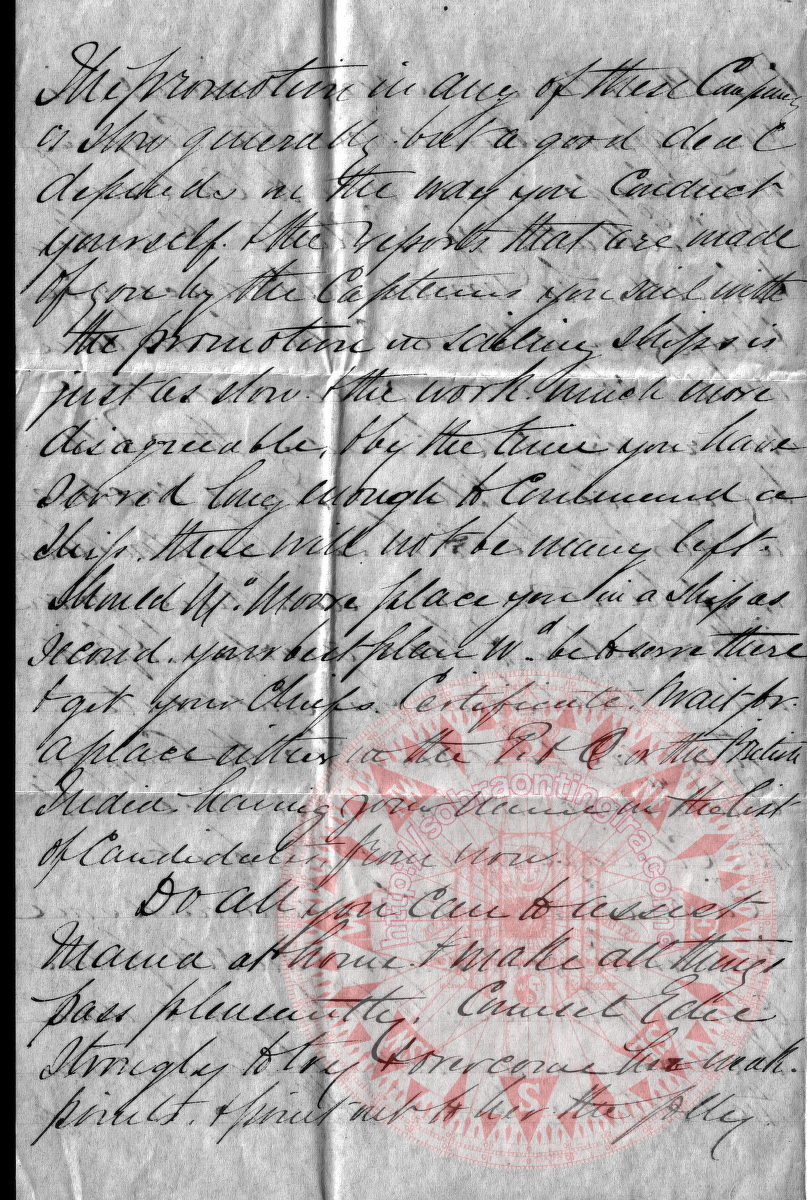 The promotion in any of these Companies
is slow generally but a good deal
depends on the way you conduct
yourself. & the reports that are made
of you by the Captains you sail with
the promotion in sailing ships is
just as slow. & the work much more
disagreeable, & by the time you have
served long enough to Command a
Ship. there will not be many left.
Should Mr. Moore place you in a ship as
second. your best plan wd. be to serve there
& get your Chiefs Certificate. Wait for
a place either in the P & O or the British
India. having your name in the list
of Candidates from now.
Do all you can to assist
Mama at home. & make all things
pass pleasantly. Counsel Edie
strongly to try & overcome her weak
points. & point out to her the folly